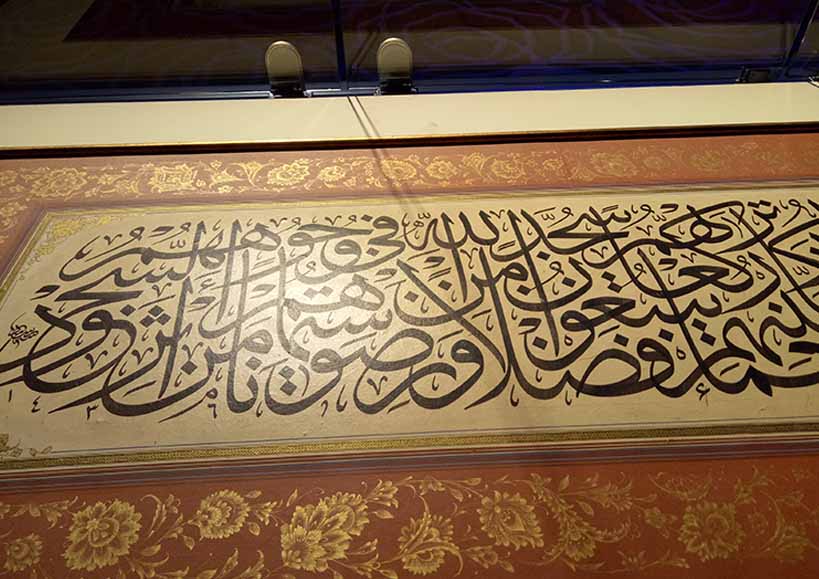 تراهم ركعا سجدا يبتغون فضلا من الله ورضوانا سيماهم في وجوههم من أثر السجود
١٤٣٦